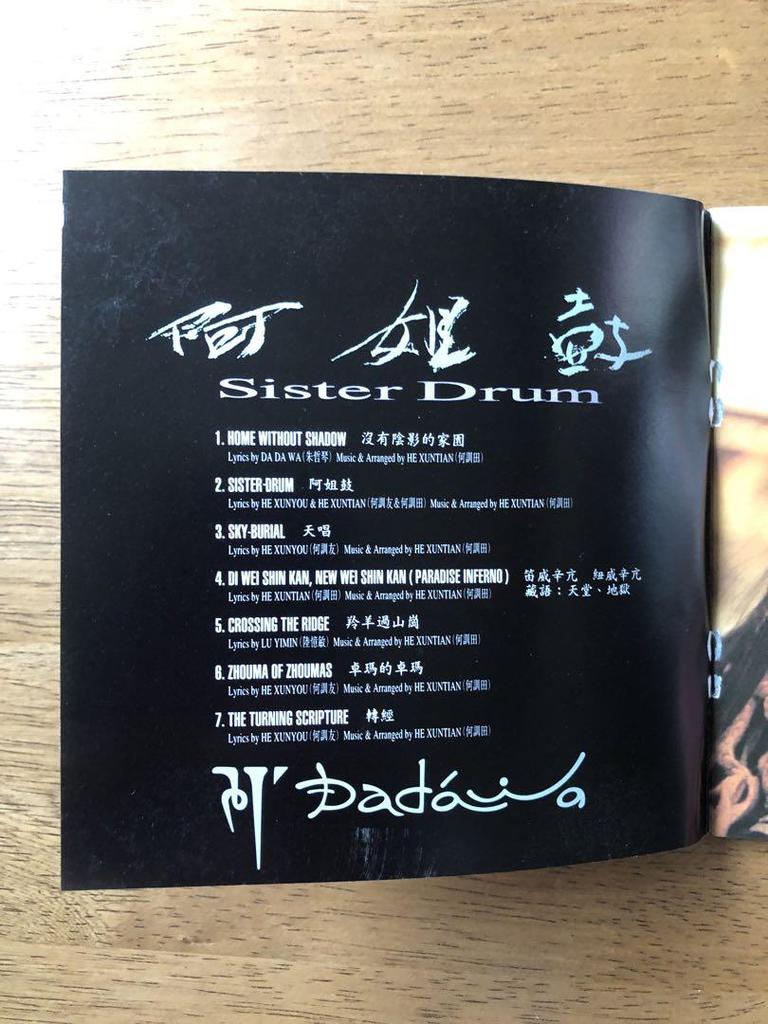 阿姐鼓
Sister Drum
1. HOME WITHOUT SHADOW 沒有陰影的家園
Lyrics by DA DA WA (朱哲琴) Music & Arranged by HE XUNTIAN (何訓田)
2. SISTER-DRUM 阿姐鼓
Lyrics by HE XUNYOU & HE XUNTIAN (何訓友&何訓田) Music & Arranged by HE XUNTIAN (何訓田)
3. SKY-BURIAL 天唱
Lyrics by HE XUNYOU (何訓友) Music & Arranged by HE XUNTIAN (何訓田)
4. DI WEI SHIN KAN, NEW WEI SHIN KAN ( PARADISE INFERNO ) 笛威辛亢 紐威辛亢
Lyrics by HE XUNTIAN (何訓田) Music & Arranged by HE XUNTIAN (何訓田) 藏語：天堂、地獄
5. CROSSING THE RIDGE 羚羊過山崗
Lyrics by LU YIMIN (陸憶敏) Music & Arranged by HE XUNTIAN (何訓田)
6. ZHOUMA OF ZHOUMAS 卓瑪的卓瑪
Lyrics by HE XUNYOU (何訓友) Music & Arranged by HE XUNTIAN (何訓田)
7. THE TURNING SCRIPTURE 轉經
Lyrics by HE XUNYOU (何訓友) Music & Arranged by HE XUNTIAN (何訓田)
Dadáwa